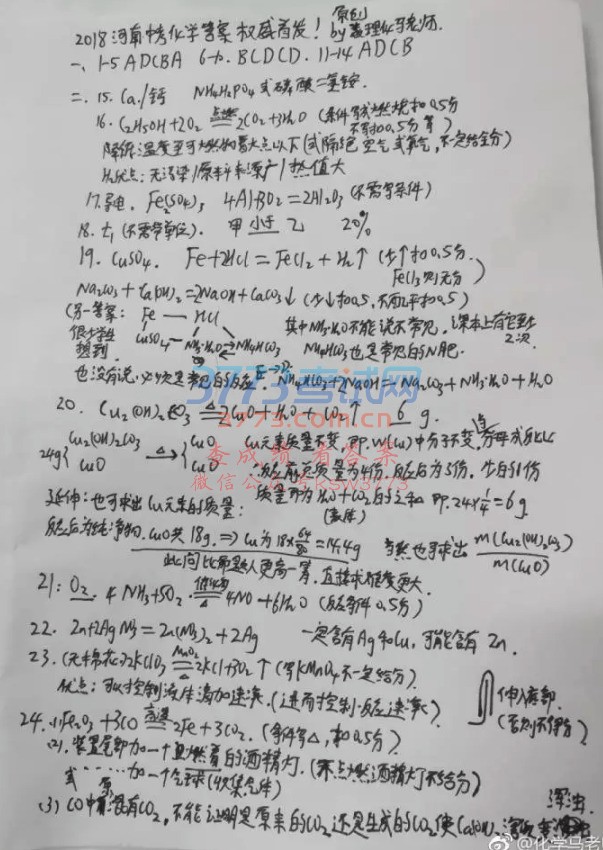 2018河南中考化学答案权威首发! 原创 by 数理化马老师.
一、1-5 ADCBA 6-10. BCDCD. 11-14 ADCB
二、15. Ca/钙 NH4H2PO4 或磷酸二氢铵.
16. C2H5OH+3O2 点燃 2CO2+3H2O (条件写成燃烧扣0.5分
不写扣0.5分等)
降低温度至可燃物着火点以下(或隔绝空气或氧气,不一定给全分)
H2优点: 无污染/原料来源广/热值大
17. 导电. Fe2(SO4)3 4Al+3O2=2Al2O3 (不需写条件)
18. t1 (不需带单位). 甲小于乙 20%
19. CuSO4. Fe+2HCl=FeCl2+H2↑ (少↑扣0.5分.
FeCl3则无分)
Na2CO3+Ca(OH)2=2NaOH+CaCO3↓ (少↓扣0.5,不配平扣0.5)
(另一答案: Fe — HCl
很少学生 CuSO4—NH3·H2O⇌NH4HCO3
想到. 其中NH3·H2O不能说不常见,课本上有它至少2次.
NH4HCO3也是常见的N肥.
也没有说,必须是常见的反应. NH4HCO3+2NaOH=Na2CO3+NH3·H2O+H2O
3773考试网
www.3773.com.cn
查成绩 看答案
微信公众号 ksw3773
20. Cu2(OH)2CO3 △ 2CuO+H2O+CO2↑ 6 g.
24g{Cu2(OH)2CO3 CuO △→ {CuO CuO Cu元素质量不变,即.W(Cu)中分子不变,分母成反比
∴反应前总质量为4份,反应后为3份,少的1份
质量即为H2O+CO2的之和 即.24×1/4=6g
延伸:也可求出Cu元素的质量:
反应后为纯净物. CuO共18g.⇒Cu为18×64/80=14.4g 当然也可求出 m(Cu2(OH)2CO3)/m(CuO)
此问比命题人更高一筹,直接求难度更大.
21: O2. 4NH3+5O2 催化剂 △ 4NO+6H2O (反应条件0.5分)
22. Zn+2AgNO3=Zn(NO3)2+2Ag 一定含有Ag和Cu,可能含有Zn.
23. (无棉花)2KClO3 MnO2 △ 2KCl+3O2↑ (写KMnO4不一定给分).
优点: 可以控制液体滴加速率.(进而控制反应速率) 伸入底部.
(否则不得分)
24. (1)Fe2O3+3CO 高温 2Fe+3CO2. (条件写△,扣0.5分)
(2). 装置尾部加一个且燃着的酒精灯.(不点燃酒精灯不给分)
或……加一个气球(收集气体)
(3) CO中混有CO2,不能证明是原来的CO2还是生成的CO2使Ca(OH)2 浑浊.
@化学马老